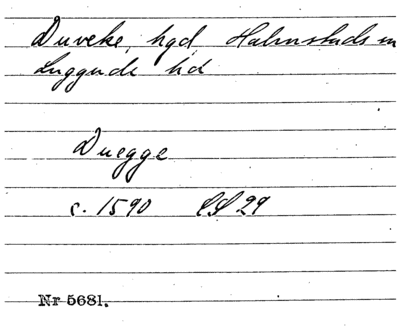 Duveke, hgd, Halmstads sn
Luggude hd
Duegge
c. 1590 LS 29
Nr 5681.